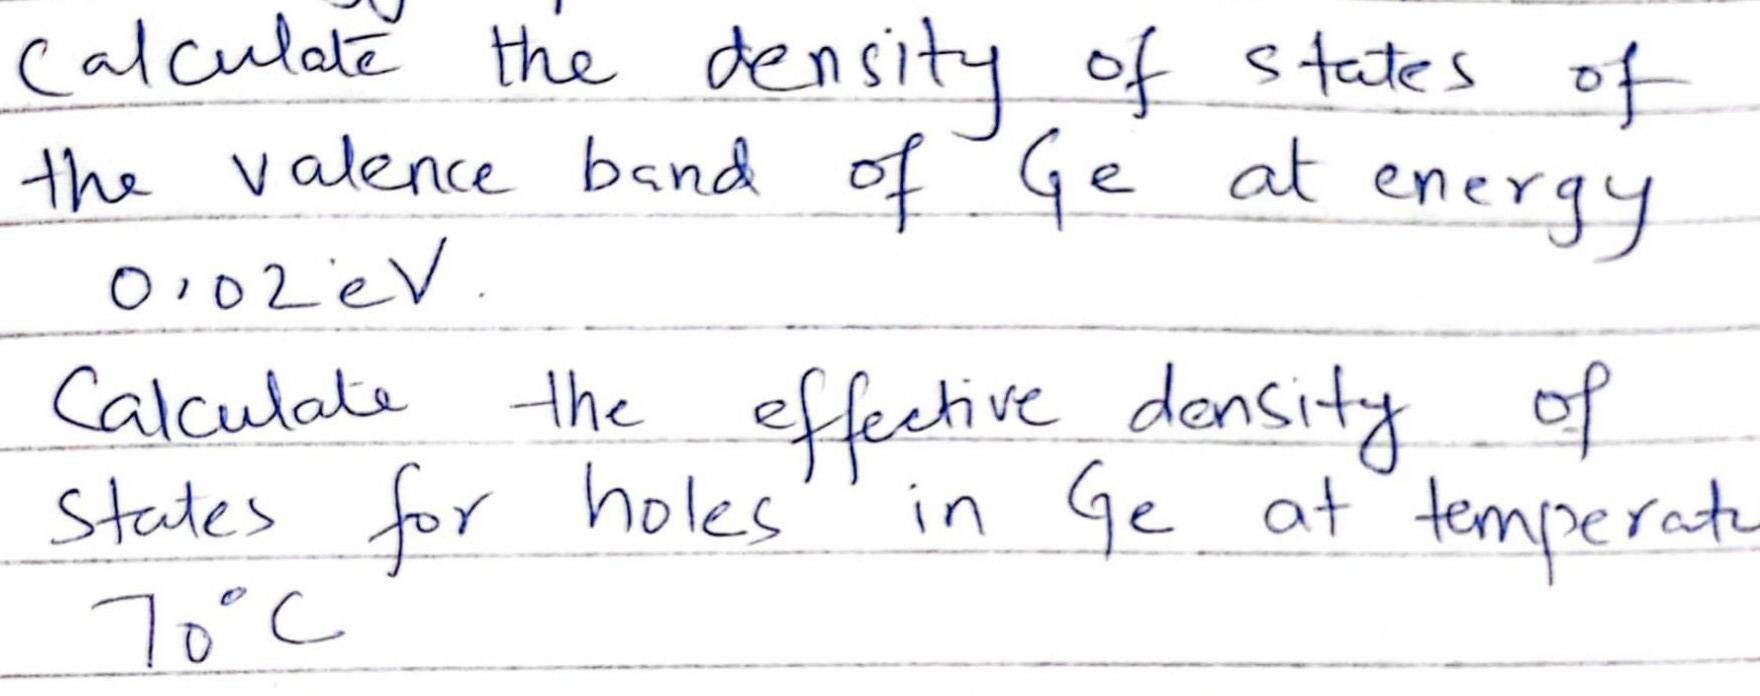 Calculate the density of states of
the valence band of Ge at energy
0.02 eV.
Calculate the effective density of
states for holes in Ge at temperatu
70°C